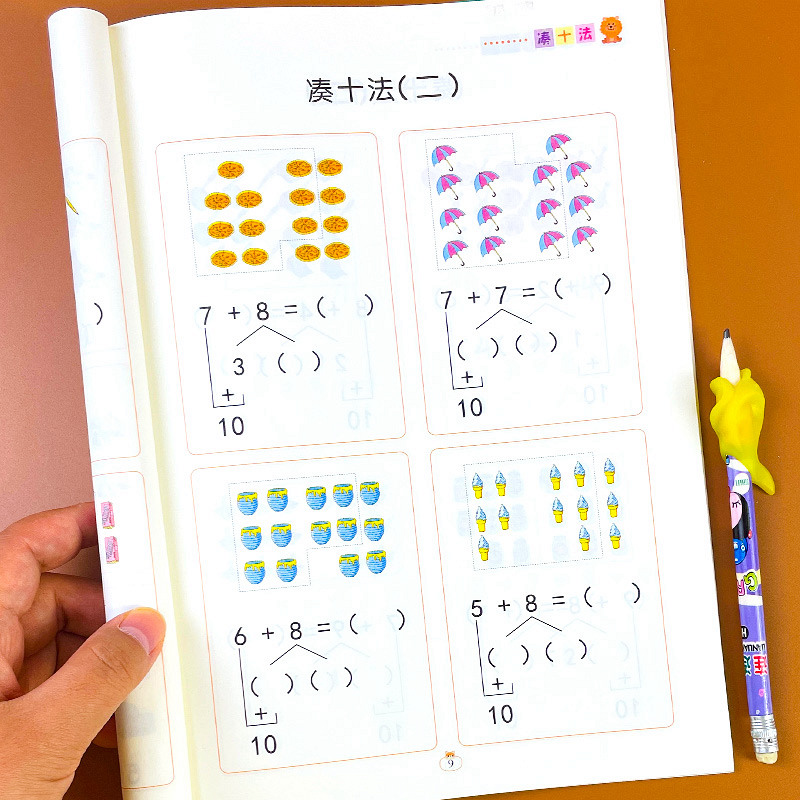 凑十法
凑十法(二)
7 + 8 = ( )
3 ( )
+
10
7 + 7 = ( )
( ) ( )
+
10
6 + 8 = ( )
( ) ( )
+
10
5 + 8 = ( )
( ) ( )
+
10
9